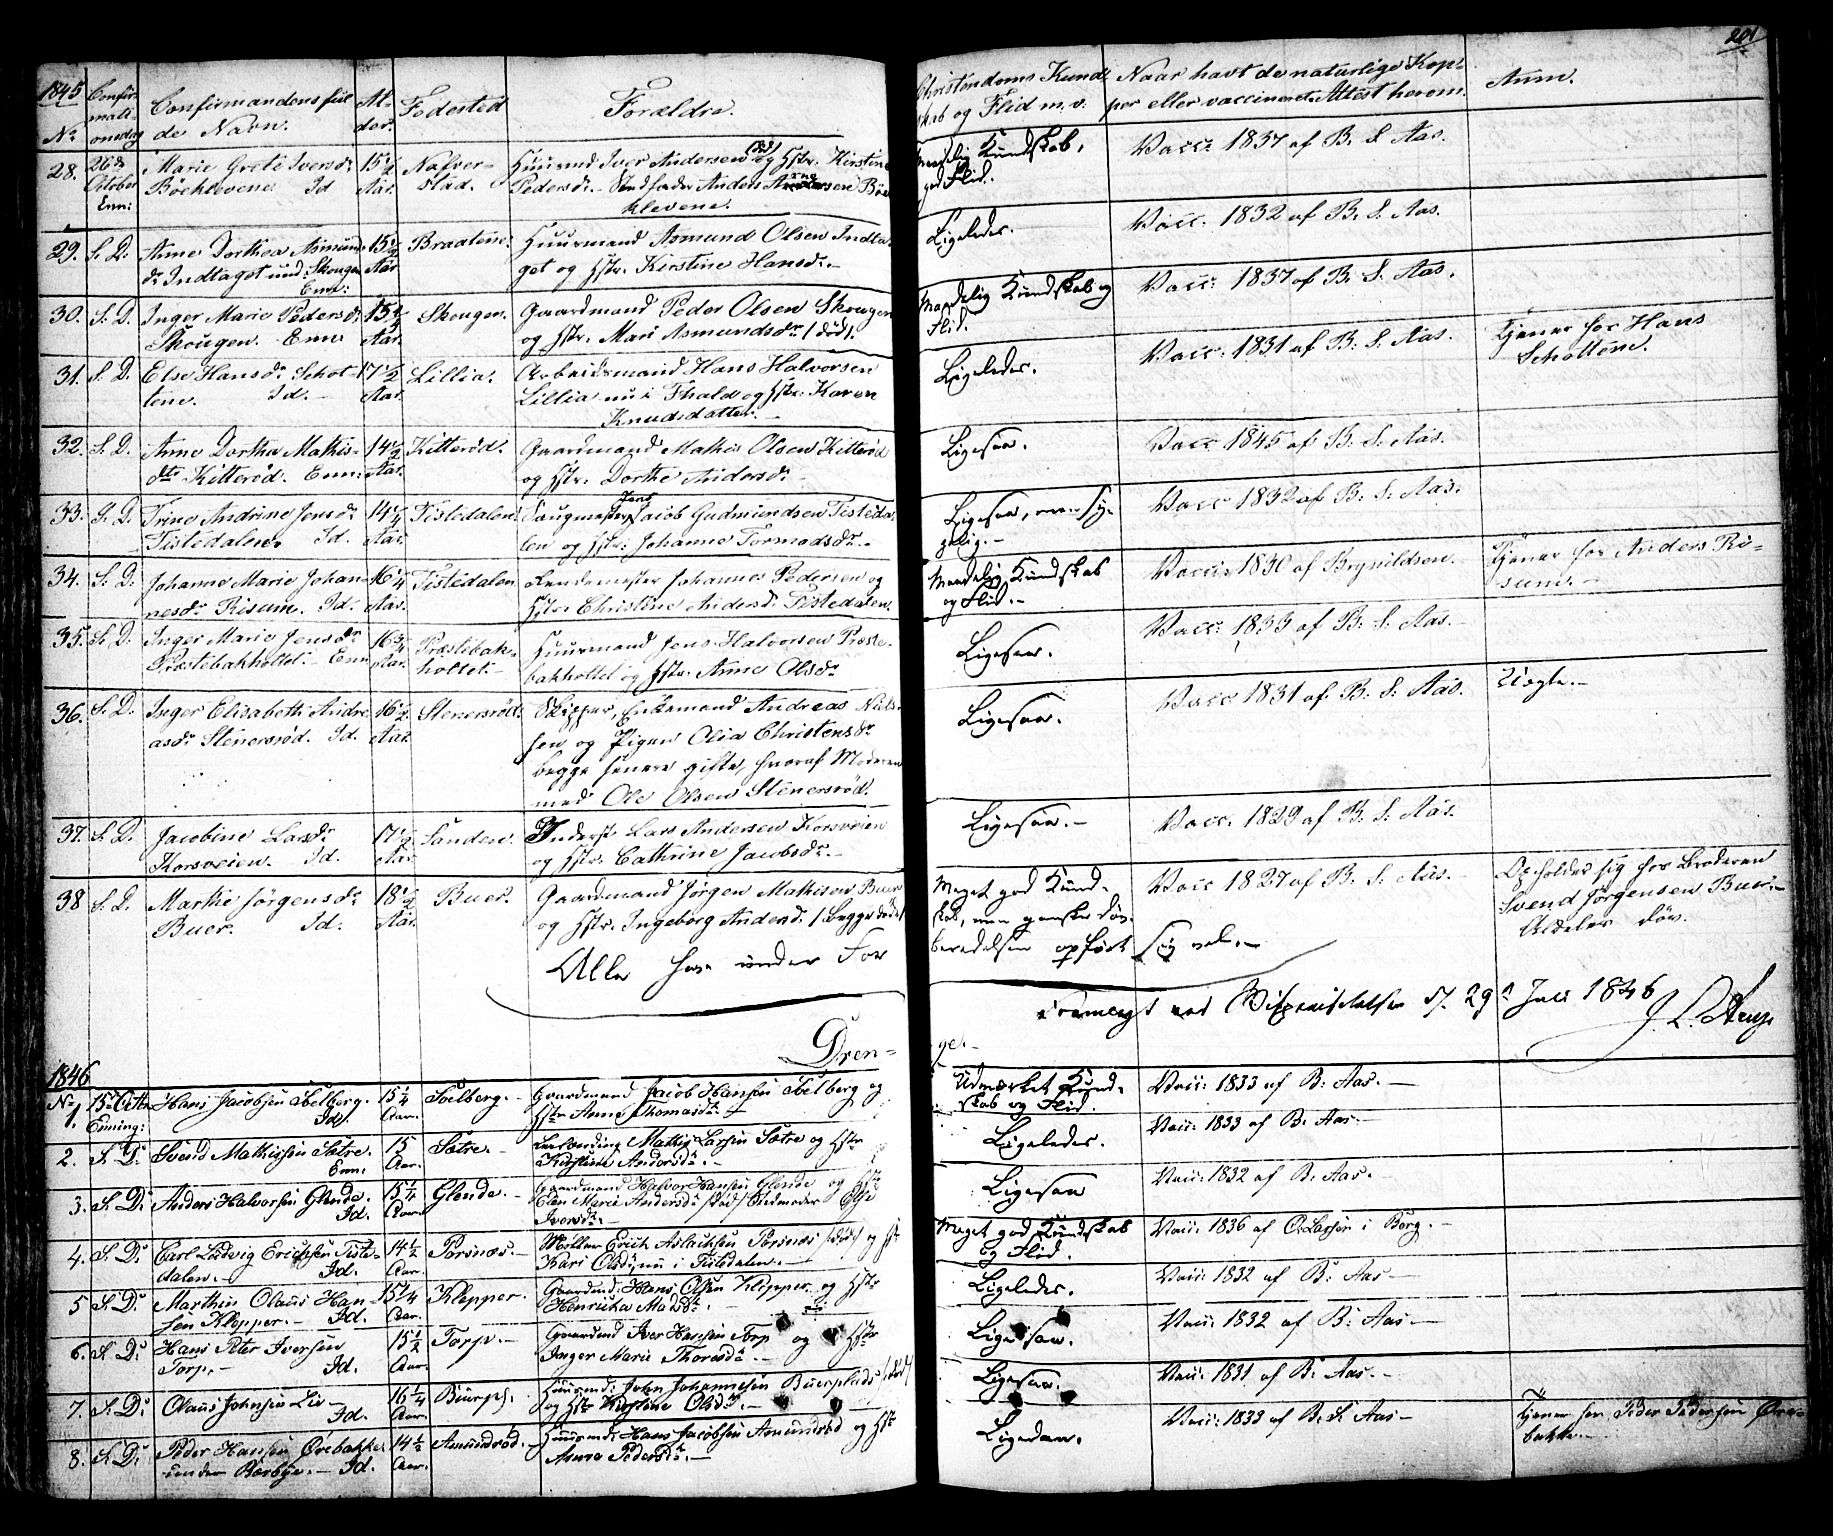 201
1845
No
Confir-
mati-
onsdag
Confirmandens ful
de Navn.
Al-
der.
Fødested
Forældre.
Christendoms Kund
skab og Flid m.v.
Naar havt de naturlige Kop-
per eller vaccineret. Attest herom.
Anm.
28. 26de October Enn: Marie Grete Iversdr Bøeklevene Id 15 1/2 Aar. Nafver-
stad. Huusmd Iver Andersen (død) og Hstr. Kirstine
Pedersdr. Stedfader Anders Andersen Bøe
klevene. Maadelig Kundskab, god Flid. Vacc: 1837 af B. S. Aas.
29. S. D. Anne Dorthea Asmunds
dr Indtaget und: Skougen
Enn: 15 1/2 Aar Braatene. Huusmand Asmund Olsen Indta-
get og Hstr. Kirstine Hansdr.- Ligeledes. Vacc. 1832 af B. S. Aas.
30. S. D. Inger Marie Pedersdr
Skougen. Enn: 15 1/2 Aar. Skougen. Gaardmand Peder Olsen Skougen
og Hstr. Mari Asmundsdr /død/. Maadelig Kundskab og
Flid. Vacc: 1837 af B. S. Aas.
31. S. D. Else Hansdr Schot-
tene. Id.- 17 1/2 Aar. Lillia. Arbeidsmand Hans Halvorsen
Lillia nu i Fhald og Hstr. Karen
Knudsdatter.- Ligeledes. Vacc. 1831 af B. S. Aas. Tjener for Hans
Schottene.
32. S. D. Anne Dorthea Mathis-
dtr Kitterød. Enn: 14 1/2 Aar. Kitterød. Gaardmand Mathis Olsen Kitterød
og Hstr. Dorthe Andersdr.- Ligesaa. Vacc 1845 af B. S. Aas.
33. S. D. Trine Andrine Jensdr
Tistedalen. Id. 14 1/4 Aar. Tistedalen. Jens
Saugmester Jacob Gudmundsen Tisteda-
len og Hstr: Johanne Tormodsdr.- Ligesaa, men sy-
gelig.- Vacc 1832 af B. S. Aas.
34. S. D. Johanne Marie Johan-
nesdr Risum. Id. 16 1/4 Aar. Tistedalen Lændsmester Johannes Pedersen og
Hstr. Christine Andersd. Tistedalen. Maadelig Kundskab
og Flid.- Vacc. 1830 af Brynildsen. Tjener for Anders Ri-
sum.-
35. S. D. Inger Marie Jensdr
Præstebakholtet.- Enn 16 3/4 Aar. Præstebak-
holtet.- Huusmand Jens Halvorsen Præste-
bakholtet og Hstr. Anne Olsdr Ligesaa. Vacc: 1833 af B. S. Aas.-
36. S. D. Inger Elisabeth Andre
asdr Stenersrød. Id. 16 1/2 Aar. Stenersrød. Skipper, Enkemand Andreas Niel-
sen og Pigen Olia Christensdr
begge senere gifte, hvoraf Moderen
med Ole Olsen Stenersrød. Ligesaa. Vacc 1831 af B. S. Aas. Uægte.-
37. S. D. Jacobine Larsdr
Korsveien. Id. 17 1/2 Aar. Sanden. Inderst Lars Andersen Korsveien
og Hstr. Cathrine Jacobsdr.- Ligesaa.- Vacc. 1829 af B. S. Aas.
38 S. D. Marthe Jørgensdr
Buer. Id. 18 1/2 Aar. Buer. Gaardmand Jørgen Mathisen Buer
og Hstr. Ingeborg Andersd. /begge døde/ Meget god Kund-
skab, men ganske døv. Vacc 1827 af B. S. Aas. Opholder sig hos Broderen
Svend Jørgensen Buer.-
Aldeles døv.
Alle have under For beredelsen opført sig vel.-
Fremlagt ved Visitatsen d. 29 Juli 1846
Dren- ge.-
1846
No 1. 15 Octbr Enning: Hans Jacobsen Iselberg.
Id. 15 1/4 Aar. Iselberg. Gaardmand Jacob Hansen Iselberg og
Hstr Anne Thomasdr.- Udmærket Kund-
skab og Flid. Vacc: 1833 af B. Aas.-
2. S. D. Svend Mathissen Sætre.
Enn: 15 Aar. Sætre.- Mathis Larsen Sætre og Hstr
Kirstine Andersdr.- Ligeledes. Vacc: 1833 af B. Aas.-
3. S. D. Anders Halvorsen Glende.
Id. 15 1/4 Aar. Glende.- Gaardmand Halvor Hansen Glende og Hstr
Marie Andersdr /død/ Stedmoder Else
Iversdr.- Ligesaa Vacc: 1832 af B. Aas.-
4. S. D. Carl Ludvig Erichsen Tiste-
dalen.- Id. 14 1/2 Aar. Porsnæs.- Møller Erich Aslachsen Porsnæs /død/ og Hstr
Kari Olsdr, nu i Tistdalen.- Meget god Kundskab
og Flid. Vacc: 1836 af O. Larsen i Borg.-
5 S. D. Marthin Olaus Han-
sen Klepper.- Id. 15 1/4 Aar. Klepper. Gaardmd: Hans Olsen Klepper og Hstr
Henricka Madsdr. Ligeledes. Vacc: 1832 af B. Aas.-
6. S. D. Hans Peter Iversen
Torp.- Id. 15 1/2 Aar. Torp.- Gaardmd Iver Hansen Torp og Hstr
Inger Marie Thoresdr.- Ligesaa. Vacc: 1832 af B. Aas.-
7. S. D. Olaus Johnsen Lie-
Id. 16 1/4 Aar. Buerpl. Huusmd: John Johannesen Buerplads /død/
og Hstr Kirstine Olsdr.- Ligesaa. Vacc: 1831 af B. Aas.-
8. S. D. Peder Hansen Ørebakke
under Børbye.- Id. 14 1/2 Aar. Asmundrød.- Huusmd: Hans Jacobsen Asmundrød og Hstr
Anne Pedersdr.- Ligedan. Vacc: 1833 af B. S. Aas- Tjener hos Peder Pedersen Øre-
bakke.-